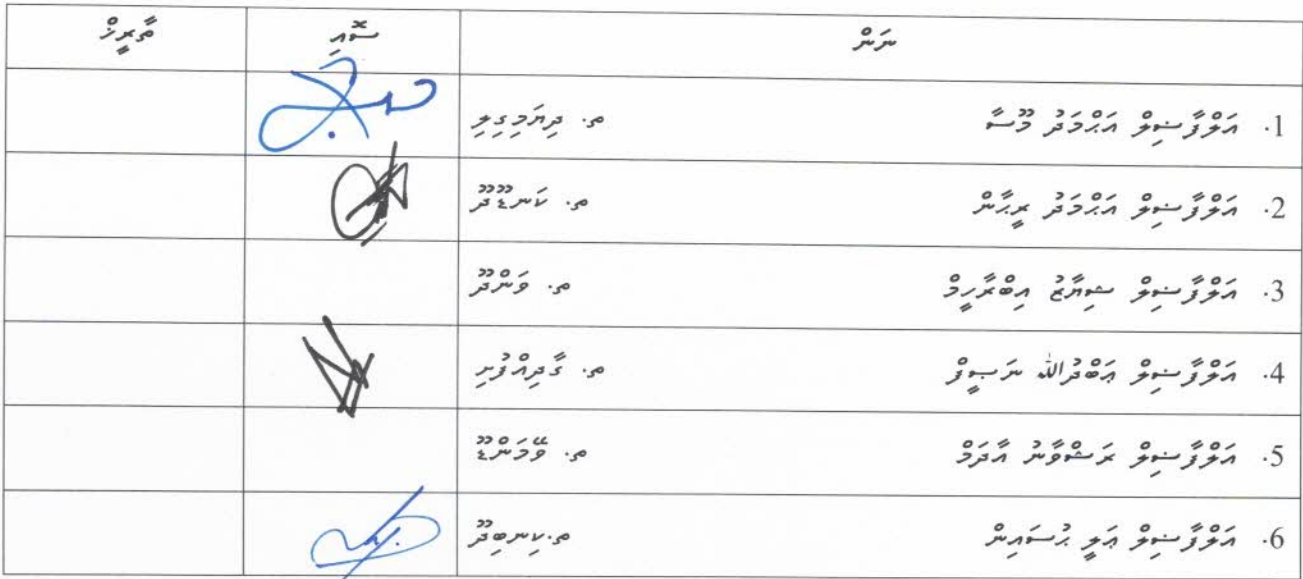 ނަން ސޮއި ތާރީޚް
1. އަލްފާޟިލް އަޙްމަދު މޫސާ ތ. ދިޔަމިގިލި
2. އަލްފާޟިލް އަޙްމަދު ރީޙާން ތ. ކަނޑޫދޫ
3. އަލްފާޟިލް ޝިޔާޒު އިބްރާހީމް ތ. ވަންދޫ
4. އަލްފާޟިލް ޢަބްދުﷲ ނަޞީފް ތ. ގާދިއްފުށި
5. އަލްފާޟިލް ރަޝްވާނު އާދަމް ތ. ވޭމަންޑޫ
6. އަލްފާޟިލް ޢަލީ ޙުސައިން ތ.ކިނބިދޫ